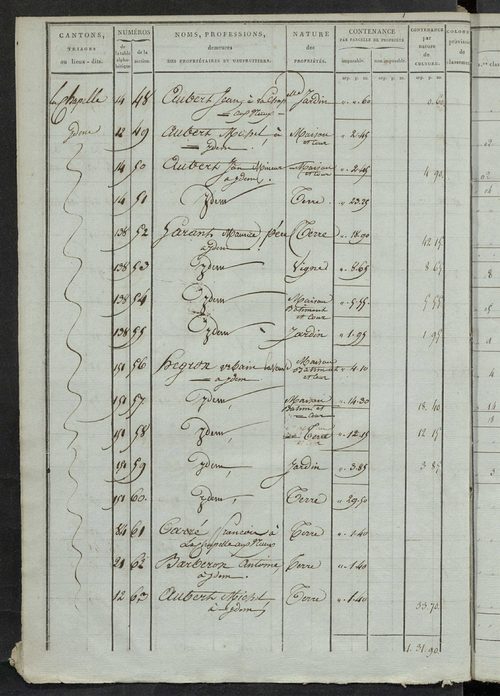 CANTONS,
TRIAGES
ou lieux-dits.
NUMÉROS
de la table alphabétique
de la section.
NOMS, PROFESSIONS,
demeures
DES PROPRIÉTAIRES ET USUFRUITIERS.
NATURE
des
PROPRIÉTÉS.
CONTENANCE
PAR PARCELLE DE PROPRIÉTÉ
imposable.
non imposable.
CONTENANCE
par
nature
de
CULTURE.
arp. p. m.
arp. p. m.
arp. p. m.
La Chapelle 14 48 Aubert Jean, à la Chap.lle Jardin " " 60 0.60
aux Naux
ydem 12 49 Aubert Michel, à Maison " 2.45
ydem. et cour
14 50 Aubert Jean Maison " 2.45 4 90
à ydem. et cour
14 51 ydem Terre " 23.25
138 52 Garant Maurice père Terre " 18.90 42 15
à ydem
138 53 ydem Vigne " 8.65 8 65
138 54 ydem Maison " 5.55 5 55
Bâtiment
et Cour
138 55 ydem Jardin " 1.95 1 95
151 56 hegron urbain Maison " 4.10
à ydem Bâtiment
et Cour
151 57 ydem, Maison " 14.30 18.40
Batim. et
Cour
151 58 ydem, Terre " 12.15 12 15
151 59 ydem, Jardin " 3.85 3 85
151 60 ydem, Terre " 29.50
24 61 Carré François à Terre " 1.40
La Chapelle aux Naux
21 62 Barberon Antoine Terre " 1.40
à ydem.
12 63 Aubert Michel Terre " 1.40
à ydem 33 70
1. 31. 90